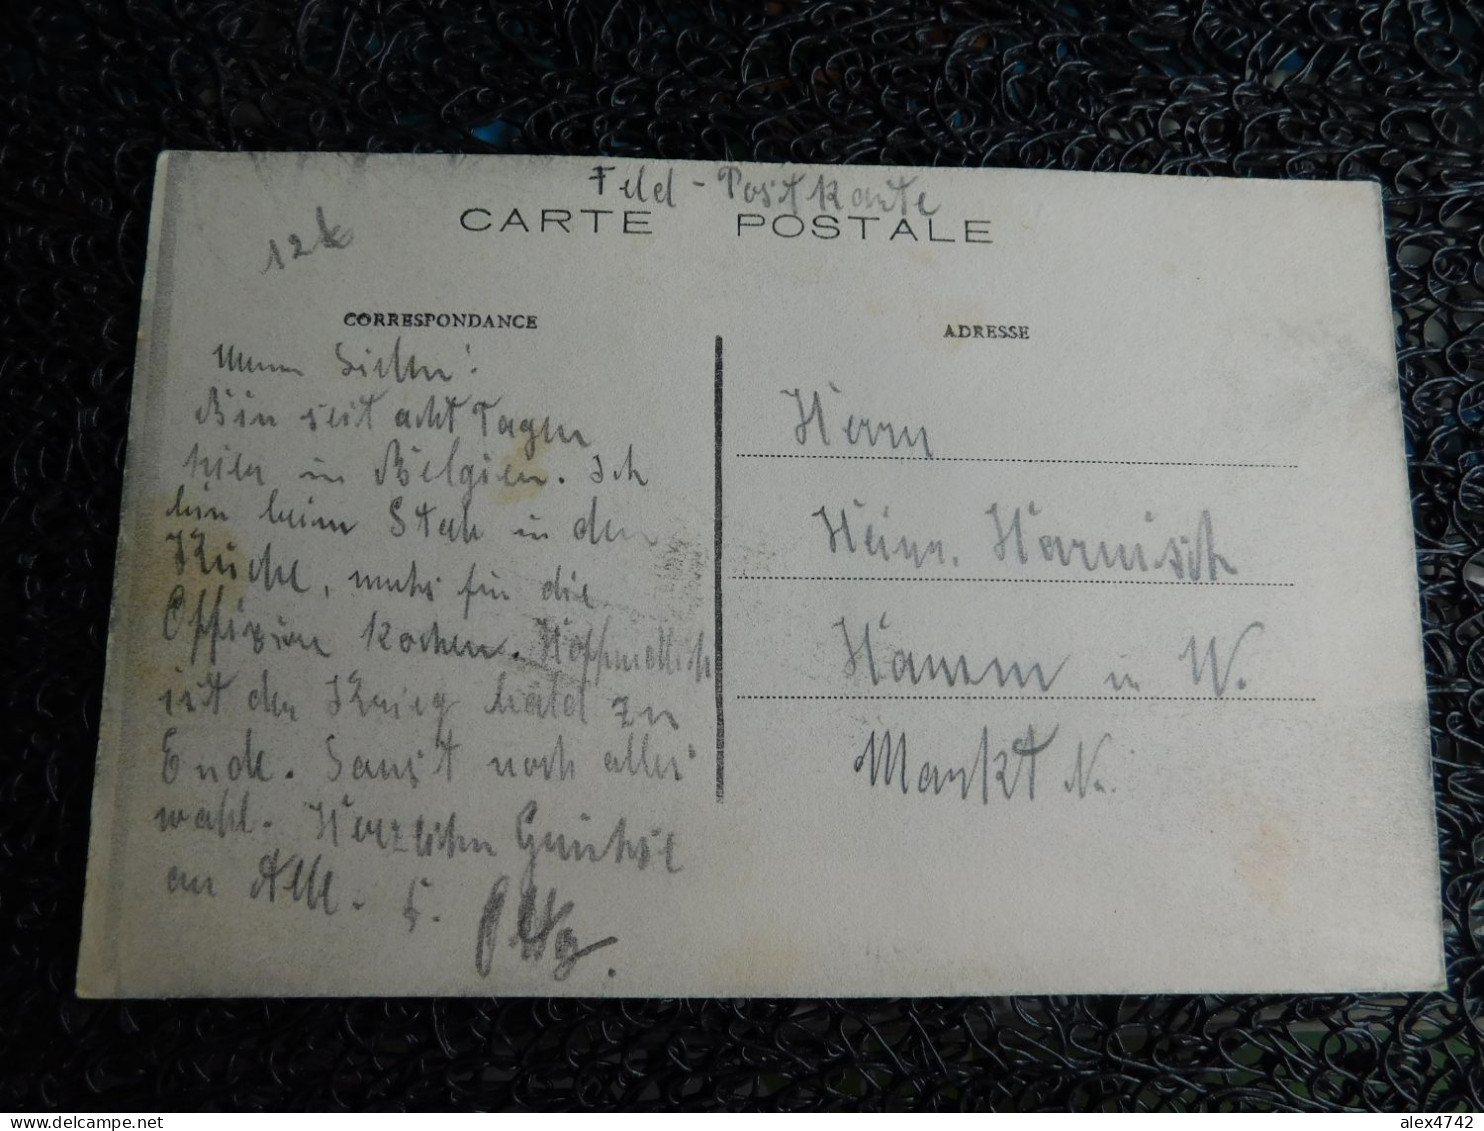 Feld-Postkarte
CARTE POSTALE
12
CORRESPONDANCE
Meine Lieben!
Bin seit acht Tagen
hier in Belgien. Ich
bin beim Stab in der
Küche, muhs für die
Offiziere kochen. Hoffendlich
ist der Krieg bald zu
Ende. Sonst noch alles
wohl. Herzlichen Grüuhse
an Alle. E. Otto.
ADRESSE
Herrn
Heinr. Harnisch
Hamm in W.
Markt Nr.
alex4742